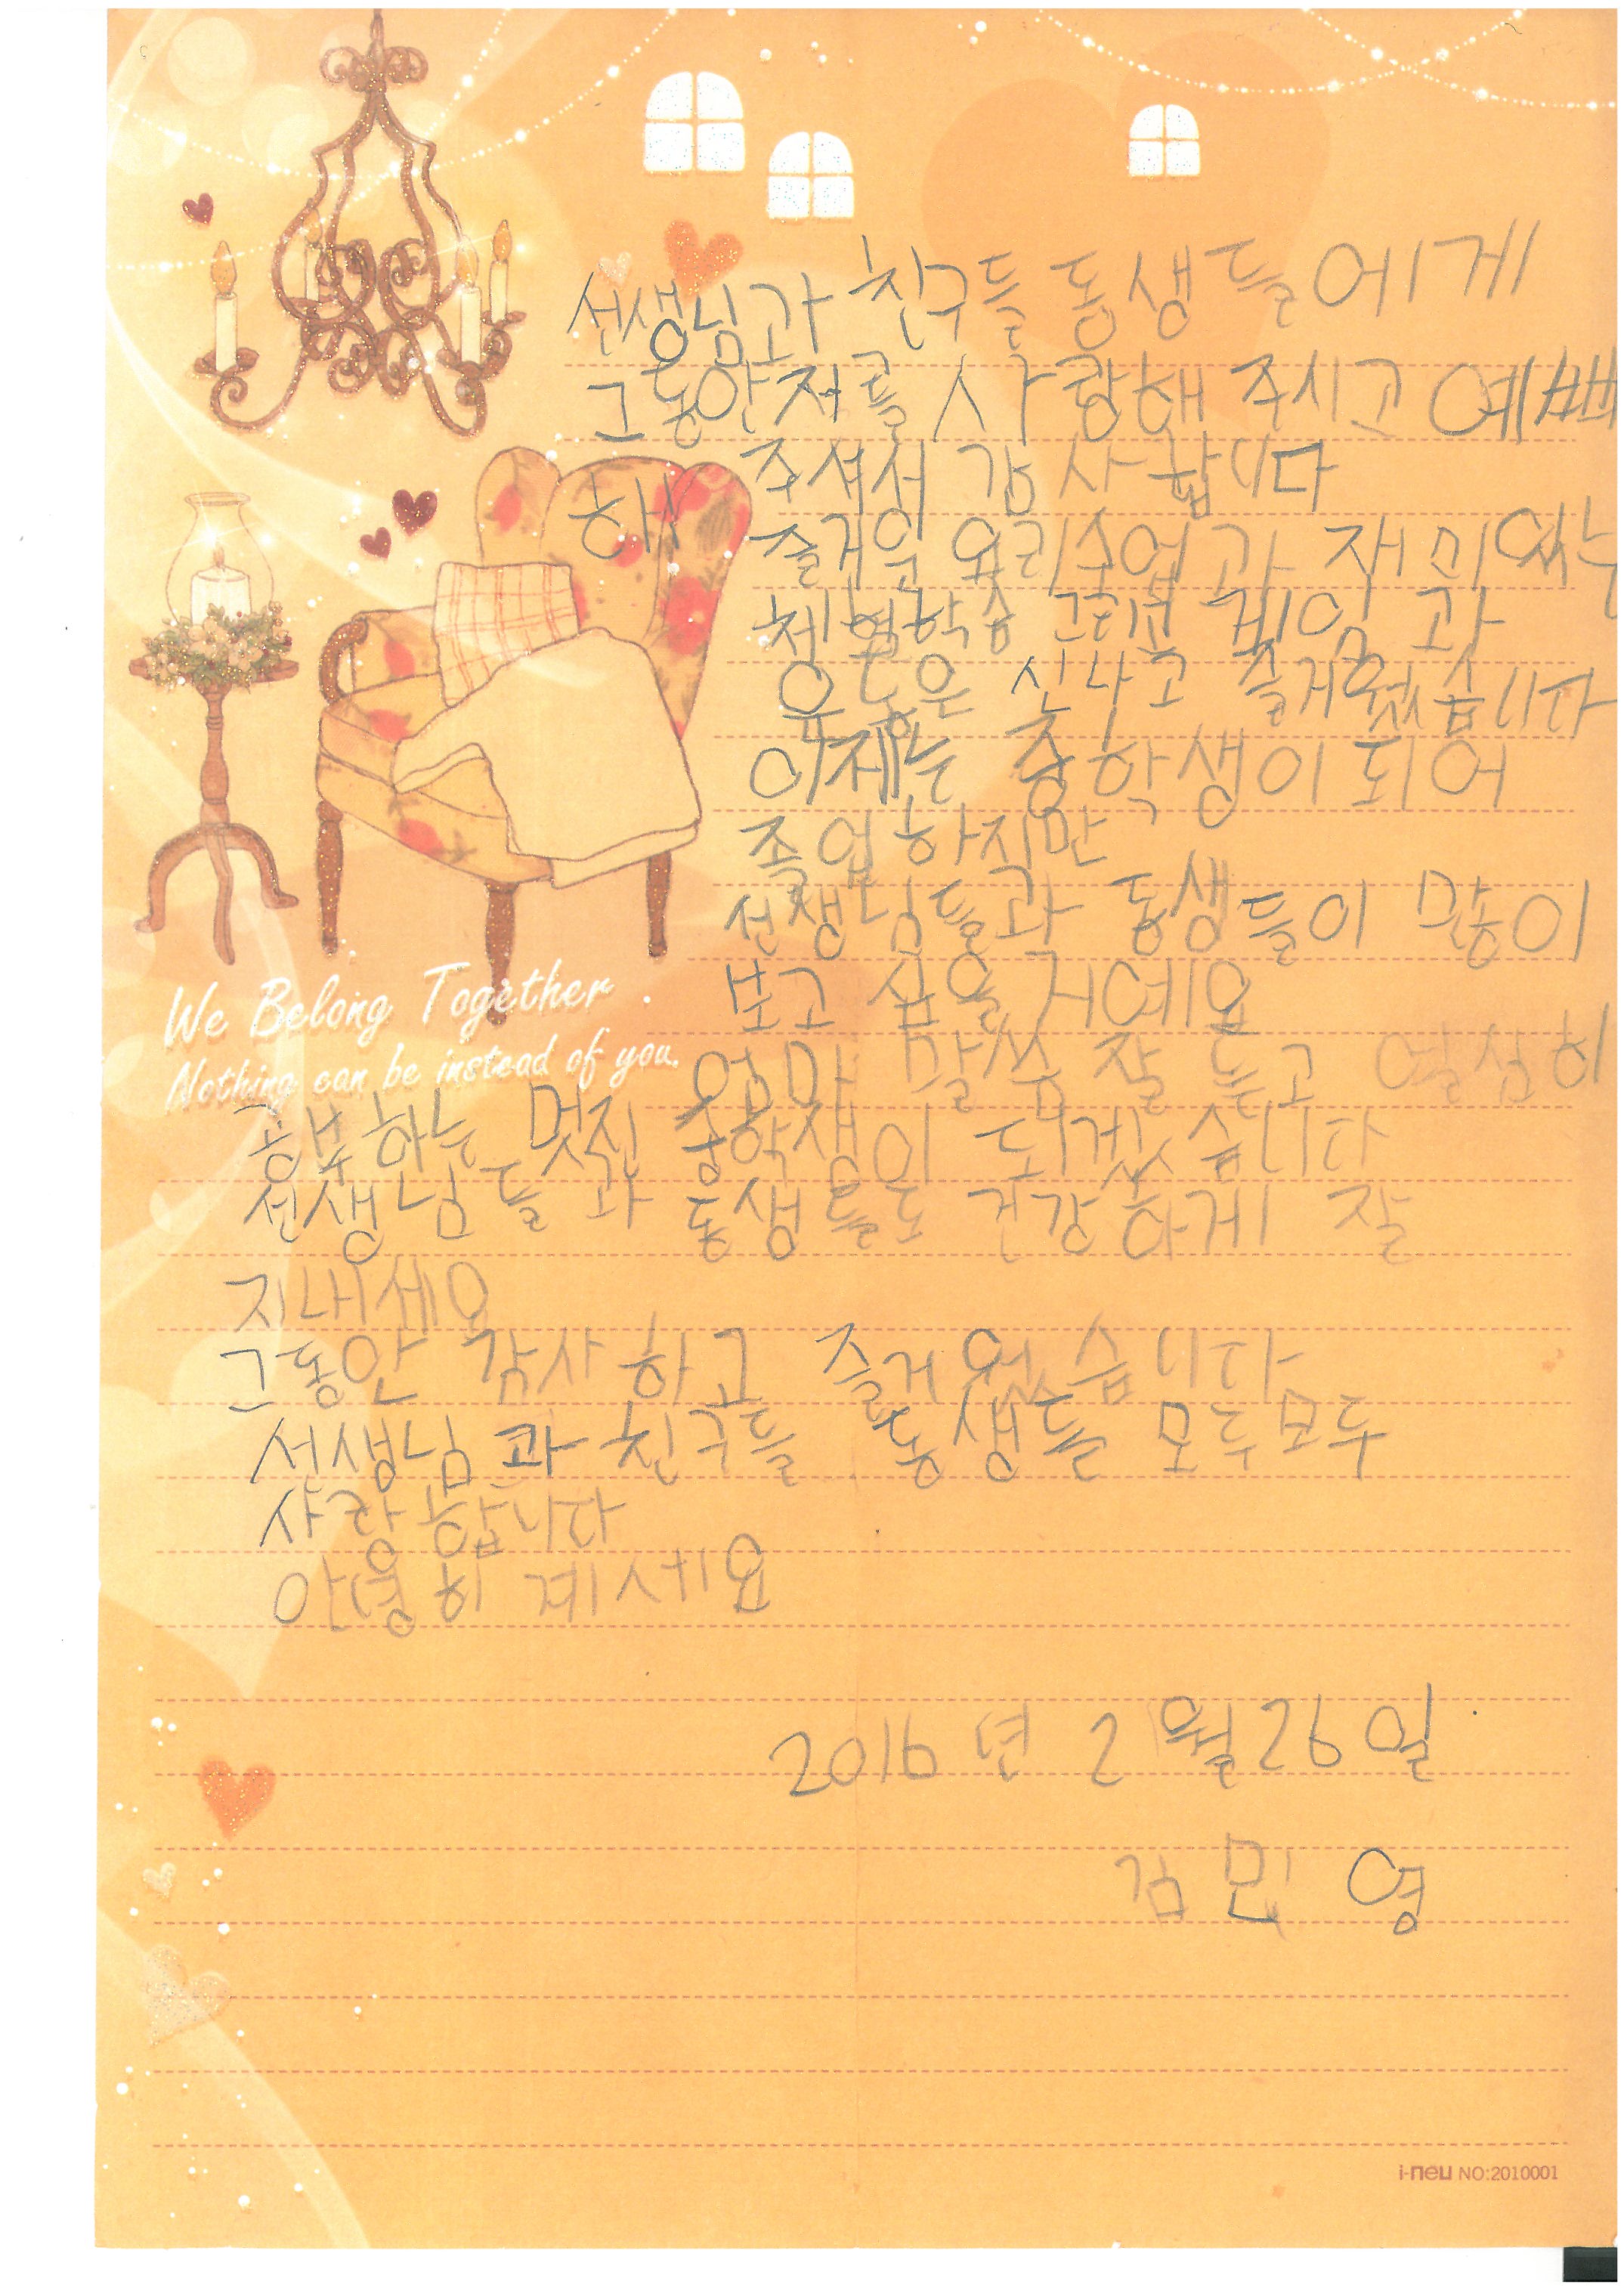 선생님과 친구들 동생들에게
그동안 저를 사랑해 주시고 예뻐
해 주셔서 감사합니다
즐거운 요리수업과 재미있는
체험학습 그리고 게임과
운동은 신나고 즐거웠습니다
이제는 중학생이 되어
졸업하지만
선생님들과 동생들이 많이
보고 싶을 거예요
엄마 말씀 잘 듣고 열심히
공부하는 멋진 중학생이 되겠습니다
선생님들과 동생들도 건강하게 잘
지내세요
그동안 감사하고 즐거웠습니다
선생님과 친구들 동생들 모두모두
사랑합니다
안녕히 계세요
2016년 2월 26일
김민영
We Belong Together
Nothing can be instead of you.
i-neu NO:2010001